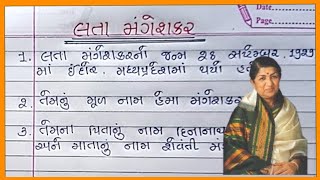 Date
Page
લતા મંગેશકર
1. લતા મંગેશકરનો જન્મ 28 સપ્ટેમ્બર, 1929
માં ઈંદોર, મધ્યપ્રદેશમાં થયો
2. તેમનું મૂળ નામ હેમા મંગેશકર
3. તેમના પિતાનું નામ દિનાનાથ
અને માતાનું નામ શેવંતી